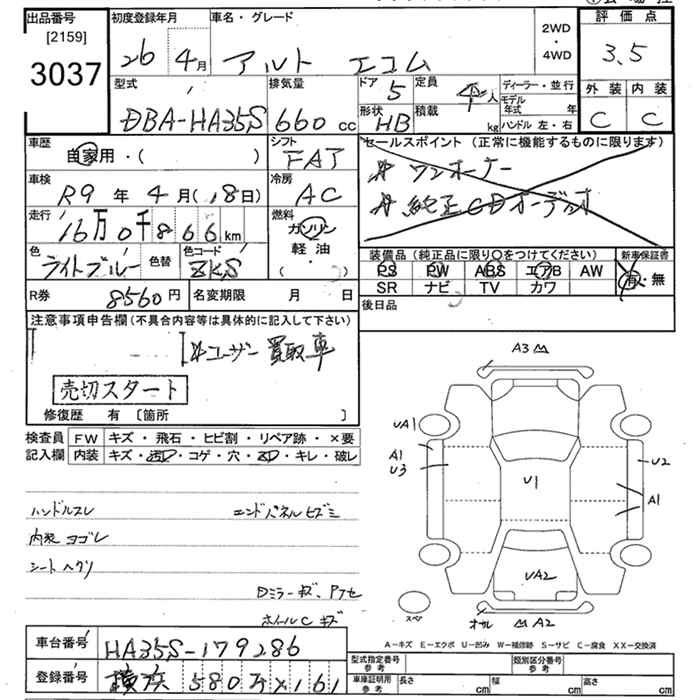 出品番号
[2159]
3037
初度登録年月
26 4月
車名・グレード
アルト エコム
2WD
・
4WD
評価点
3.5
型式
DBA-HA35S
排気量
660 cc
ドア
5
形状
HB
定員
4人
積載
kg
ディーラー・並行
モデル年式 年
ハンドル 左・右
外装 内装
C C
車歴
自家用・( )
シフト
FAT
セールスポイント (正常に機能するものに限ります)
☆ ワンオーナー
☆ 純正CDオーディオ
車検
R9 年 4 月 (18日)
冷房
AC
走行
16万0千866km
燃料
ガソリン
軽・油
( ・ )
色
ライトブルー
色替
色コード
ZKS
装備品 (純正品に限り○をつけてください)
PS PW ABS エアB AW
SR ナビ TV カワ
新車保証書
有・無
R券 8560円
名変期限 月 日
後日品
注意事項申告欄(不具合内容等は具体的に記入して下さい)
☆ユーザー買取車
売切スタート
修復歴 有 〔箇所 〕
検査員記入欄
FW キズ・飛石・ヒビ割・リペア跡・×要
内装 キズ・コゲ・穴・キレ・破レ
ハンドルスレ
エンドパネルヒズミ
内装ヨゴレ
シートヘタリ
Dミラーキズ、
ホイールCキズ
A3
UA1
A1
U3
U1
U2
A1
UA2
スペア
A2
A－キズ E－エクボ U－凹み W－補修跡 S－サビ C－腐食 XX－交換済
車台番号
HA35S-179286
登録番号
580 161
型式指定番号
参考
類別区分番号
参考
車庫証明用
参考
長さ cm
幅 cm
高さ cm